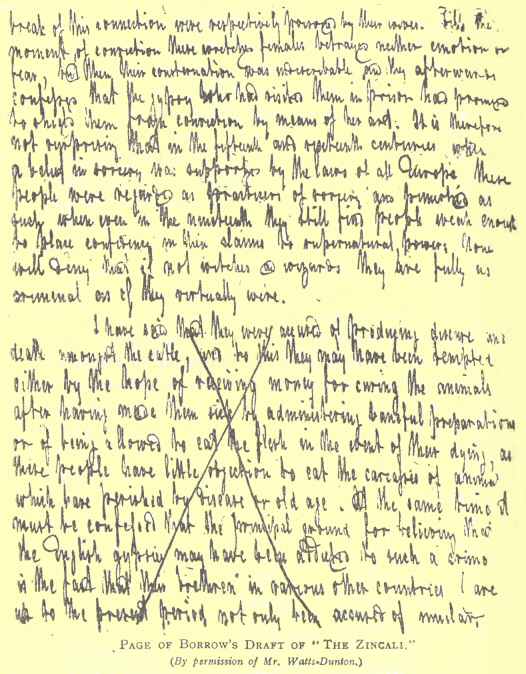 break of this connection were respectively poisoned by their wives. Till the
moment of conviction these wretched females betrayed neither emotion or
fear, but then their consternation was indescribable and they afterwards
confessed that the gypsy who had visited them in prison had promised
to shield them from conviction by means of her art. It is therefore
not surprising that in the fifteenth and sixteenth centuries when
a belief in sorcery was supported by the laws of all Europe these
people were regarded as practisers of sorcery and punished as
such when even in the nineteenth they still find people weak enough
to place confidence in their claims to supernatural power. None
will deny that if not witches or wizards they are fully as
criminal as if they virtually were.
I have said that they were accused of producing disease and
death amongst the cattle, and to this they may have been tempted
either by the hope of receiving money for curing the animals
after having made them sick by administering baneful preparations
or of being allowed to eat the flesh in the event of their dying, as
these people have little objection to eat the carcases of animals
which have perished by disease or old age. At the same time it
must be confessed that the principal ground for believing that
the English gypsies may have been addicted to such a crime
is the fact that their brethren in various other countries are
up to the present period not only been accused of similar
PAGE OF BORROW'S DRAFT OF "THE ZINCALI."
(By permission of Mr. Watts-Dunton.)